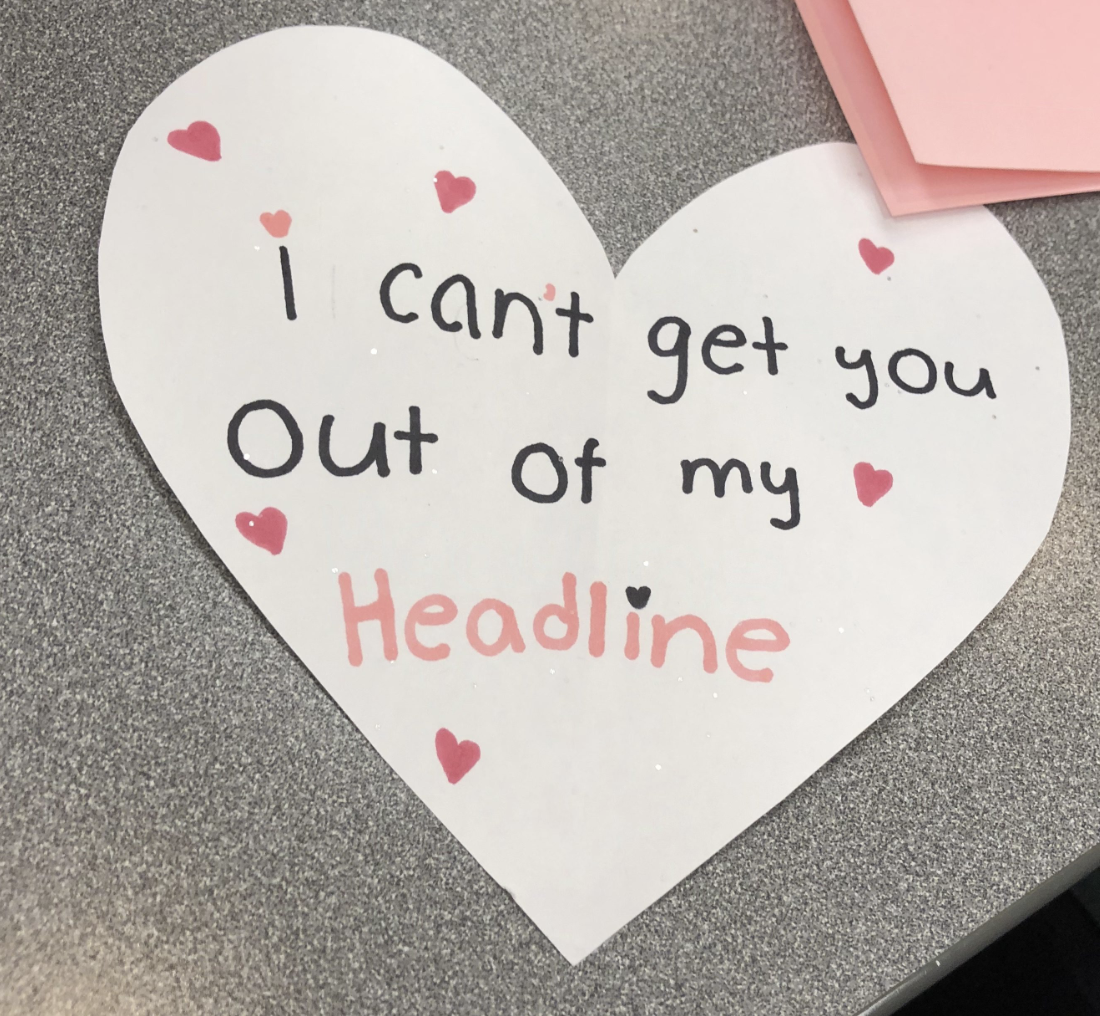 I can't get you
Out of my
Headline